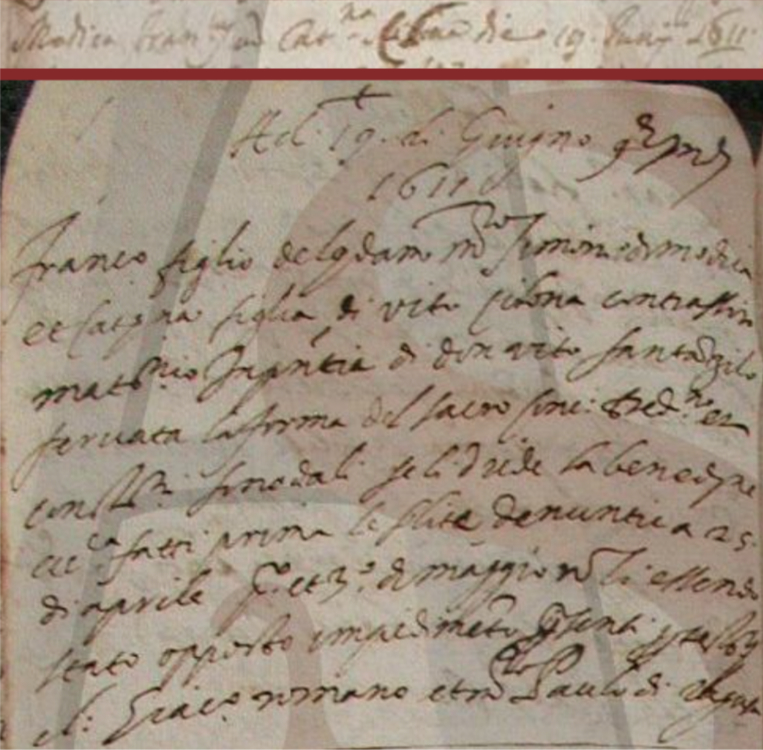 Modica Fran.co cu Cat.na Cibona die 19 Junij 1611
Ad. 19. di Giugno
1611
Franco figlio del qdam m.ro Simone di modica
et Cat.na figlia di vito cibona contrassiro
mat.nio In pntia di don vito santangilo
servata la forma del sacro conc: tred.no et
const.ni sinodali se li diede la benedne
ecc.ca fatti prima le solite denuntie a 25
di aprile p.o et 3.o di maggio no li essendo
stato opposto impedimeto psenti p testiy
Giac.o romano et m.ro Paulo di